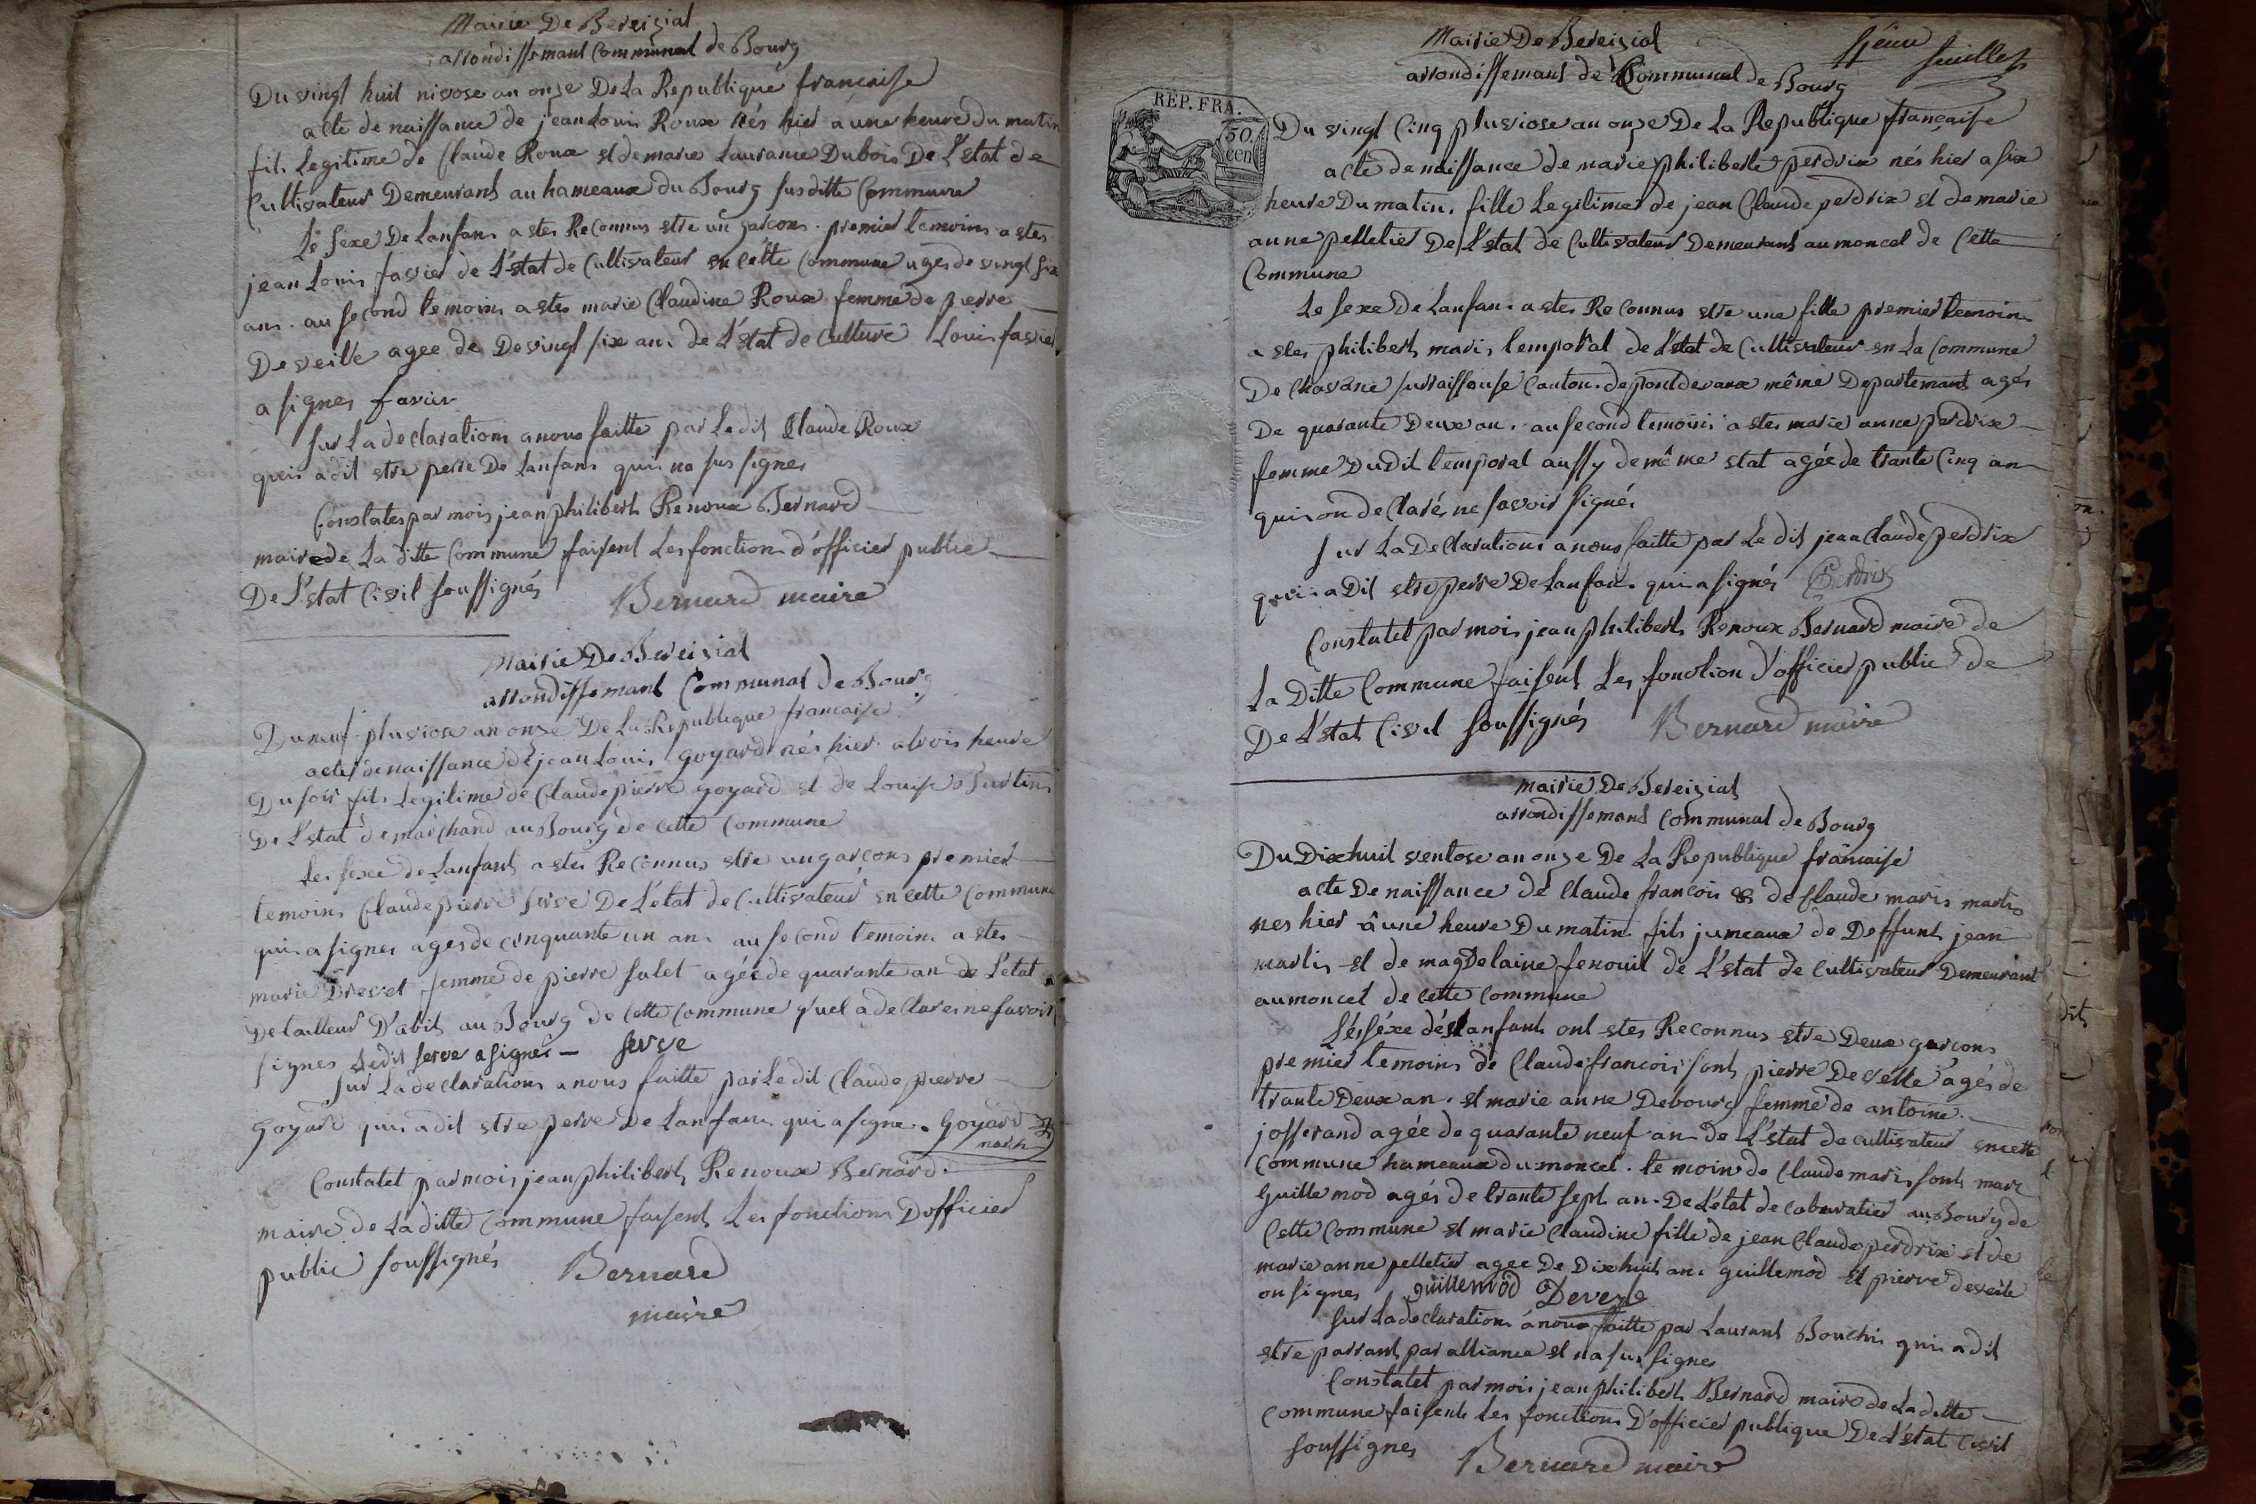 Mairie De Bereizial
arrondissemant Communal de Bourg
Du vingt huit nivose an onze De La Republique francaise
acte de naissance de jean Louis Roux nés hier a une heure du matin
fils Legitime de Claude Roux et de marie Laurance Dubois De L'estat de
Cultivateur Demeurant au hameaux du Bourg susditte Commune
Le sexe De Lanfans a etes Reconnus etre un garcons. premier temoins a etes
jean Louis favier de L'estat de Cultivateur en cette Commune ages de vingt six
ans. au second temoins a etes marie Claudine Roux femme de pierre
Deveile agee de De vingt six ans de L'estat de Culture Louis favier
a signes favier
sur La declarations a nous faitte par Le dit Claude Roux
qui a dit etre perre De Lanfans qui na sus signes
Constates par mois jean philibert Renoux Bernard
maire de La ditte Commune faisent Les fonctions d'officier public
De L'estat Civil soussignés Bernard maire
Mairie De Bereizial
arrondissemant Communal de Bourg
Du neuf pluviose an onze De La Republique francaise
acte de naissance de jean Louis Goyard nés hier a trois heure
Du soir fils Legitime de Claude pierre goyard et de Louise Burtin
De L'estat de marchand au Bourg de cette Commune
Le sexe de Lanfant a etes Reconnus etre un garcons premier
temoins Claude pierre serve De L'état de Cultivateur en cette Commune
qui a signes ages de cinquante un ans au second temoins a etes
marie Drevet femme de pierre salet agée de quarante an de L'etat
De tailleur D'abit au Bourg de cette Commune quel a declares ne savoir
signes Ledit serve a signés serve
sur La declarations a nous faitte par Le dit Claude pierre
goyard qui a dit etre perre De Lanfans qui a signe. Goyard
Constatet par mois jean philibert Renoux Bernard
maire de La ditte Commune faisent Les fonctions D'officier
public soussignés Bernard
maire
feuillet
Mairie De Bereizial
arrondissemant de Communal de Bourg
REP. FRA.
50
cen
Du vingt Cinq pluviose an onze De La Republique francaise
acte de naissance de marie philiberte perdrix nés hier a six
heure Du matin. fille Legitimes de jean Claude perdrix et de marie
anne pelletier De L'estat de Cultivateur Demeurant au moncel de Cette
Commune
Le sexe De Lanfan. a etes Reconnus etre une fille premier temoins
a etes philibert maris temporal de L'estat de Cultivateur en La Commune
De Chavane surraissouse Canton de pont de vaux même Departemant agés
De quarante Deux an. au second temoins a etes marie anne perdrix
femme Dudit temporal aussy de même etat agée de trante Cinq an
qui on declarés ne savoir signés
sur La Declarations a nous faitte par Le dit jean Claude perdrix
qui a Dit etre perre De Lanfan. qui a signés Perdrix
Constatet par mois jean philibert Renoux Bernard maire de
La Ditte Commune faisent Les fonction d'officier public de
De L'estat Civil soussignés Bernard maire
mairie De Bereizial
arrondissemant Communal de Bourg
Du Dixhuit ventose an onze De La Republique francaise
acte De naissance de Claude francois & de Claude maris martin
nes hier à une heure Du matin. fils jumeaux de Deffunt jean
martin et de magdelaine fenouil de L'estat de Cultivateur Demeurant
au moncel de cette Commune
Les séxe dés Lanfant ont etes Reconnus etre Deux garcons
premier temoins de Claude francois sont pierre Develle agés de
trante Deux an. et marie anne Debourg femme de antoine
josserand agée de quarante neuf an de L'estat de cultivateur en cette
Commune hameaux du moncel. temoins de Claude maris sont marc
Guillemod agés de trante sept an. De L'état de cabaratier au Bourg de
Cette Commune et marie Claudine fille de jean Claude perdrix et de
marie anne pelletier agee De Dixhuit ans guillemod et pierre deveile
on signes guillemod Deveyle
sur La declarations à nous faitte par Laurant Bouchis qui a dit
etre parrant par alliance et na sus signes
Constatet par mois jean philibert Bernard maire de La ditte
Commune faisents Les fonctions D'officier publique De L'estat Civil
soussignes Bernard maire